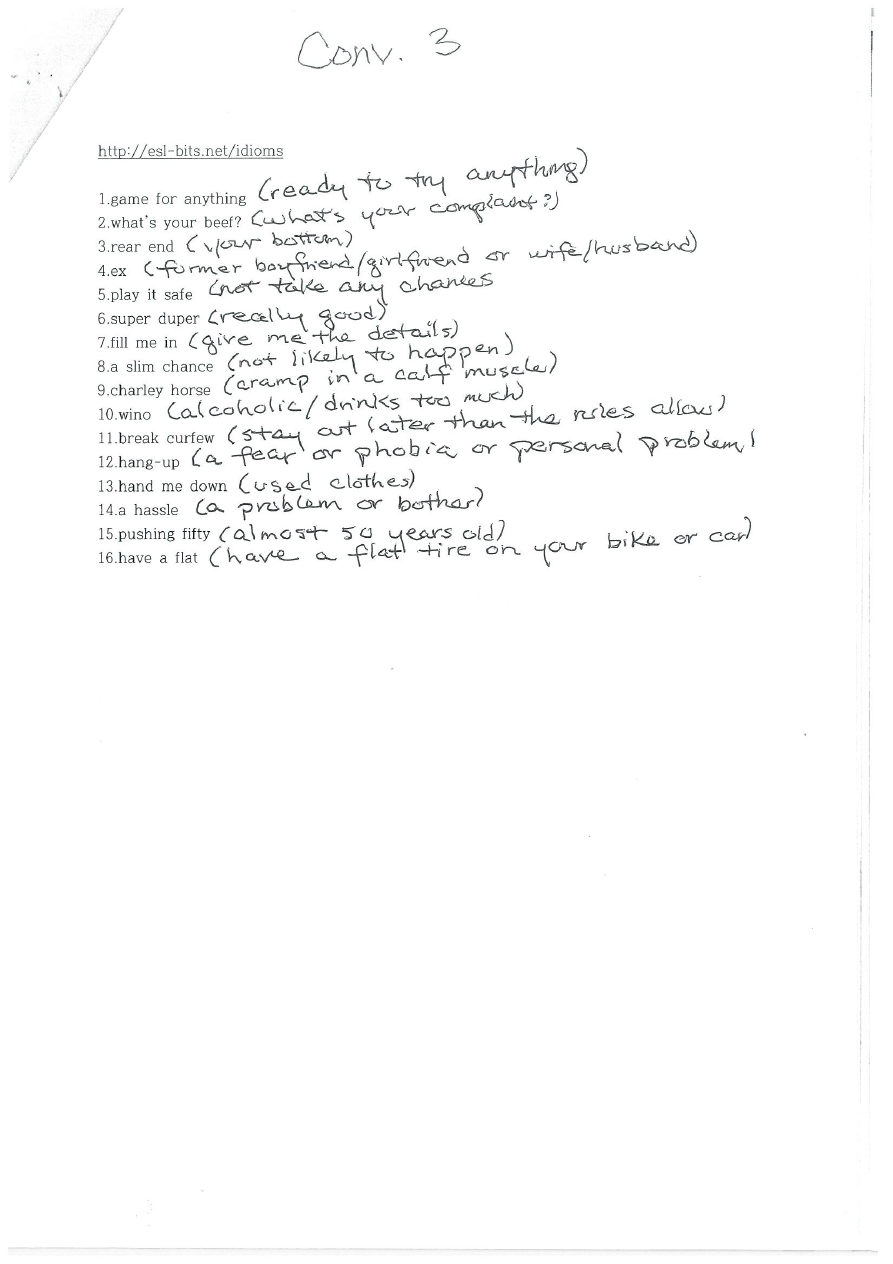 Conv. 3
http://esl-bits.net/idioms
1.game for anything (ready to try anything)
2.what's your beef? (what's your complaint?)
3.rear end (your bottom)
4.ex (former boyfriend/girlfriend or wife/husband)
5.play it safe (not take any chances
6.super duper (really good)
7.fill me in (give me the details)
8.a slim chance (not likely to happen)
9.charley horse (cramp in a calf muscle)
10.wino (alcoholic/drinks too much)
11.break curfew (stay out later than the rules allow)
12.hang-up (a fear or phobia or personal problem)
13.hand me down (used clothes)
14.a hassle (a problem or bother)
15.pushing fifty (almost 50 years old)
16.have a flat (have a flat tire on your bike or car)